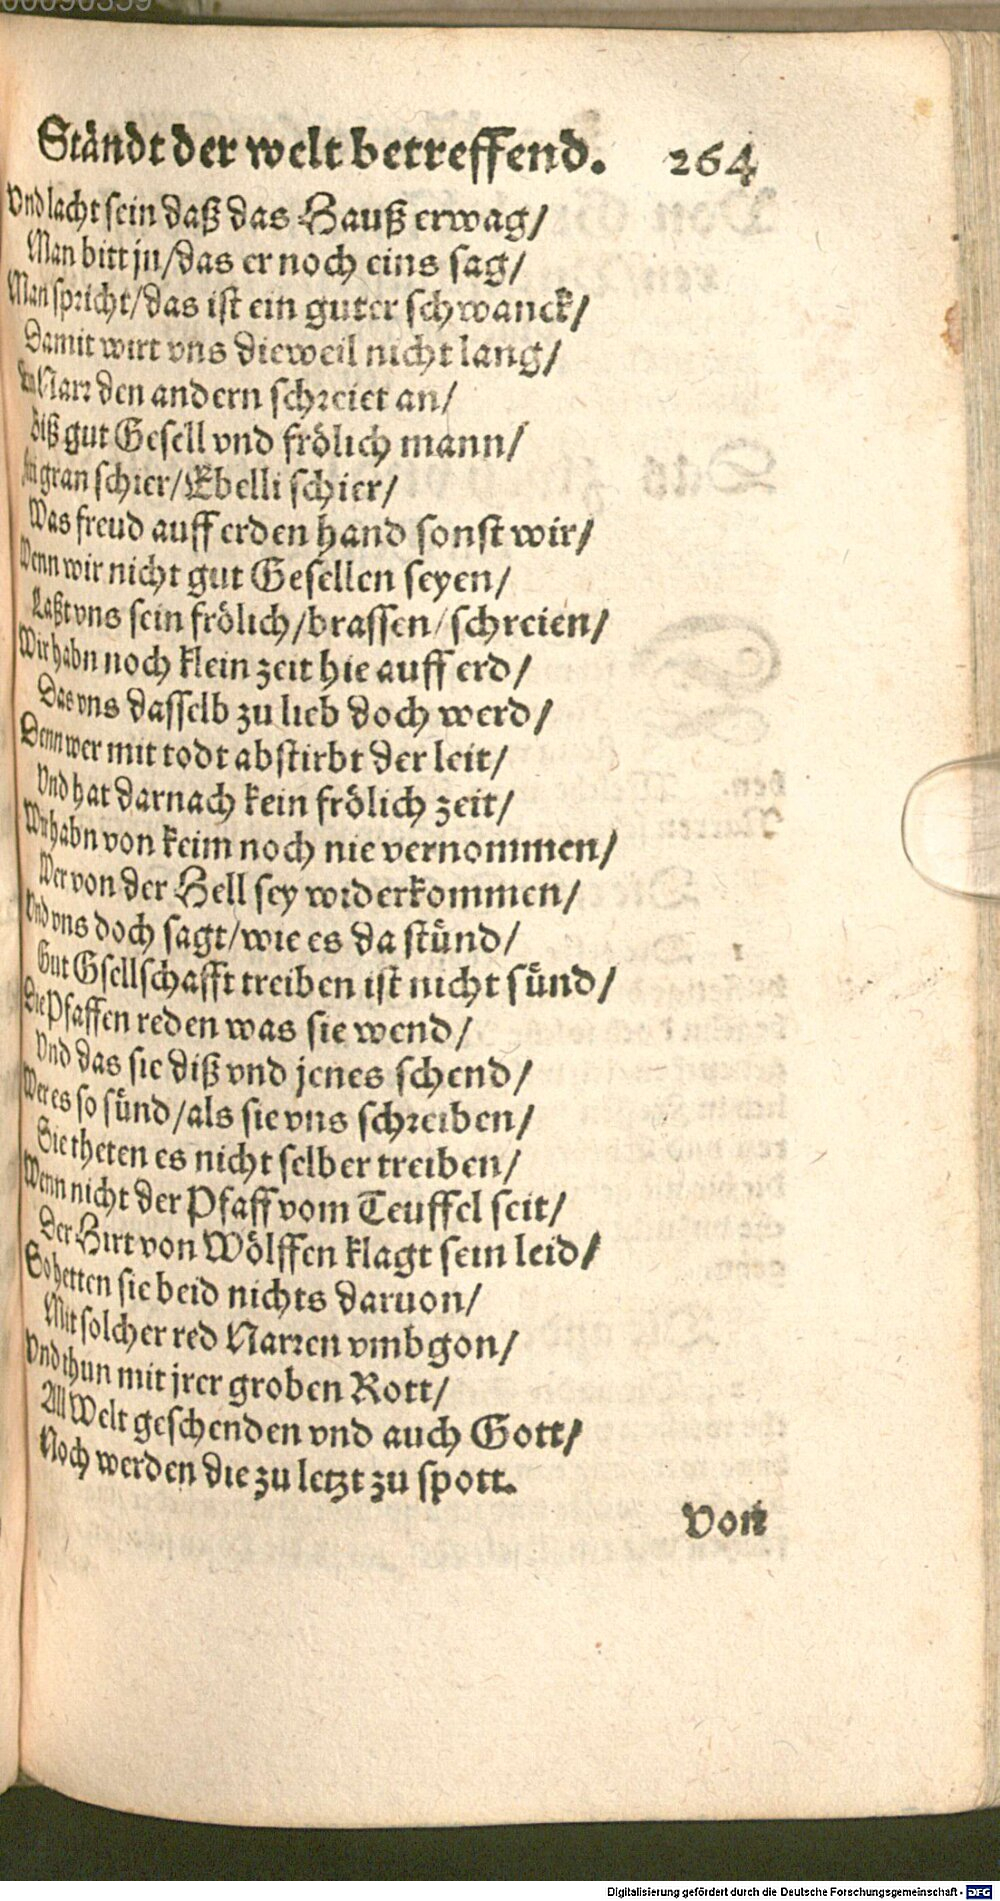 00090359
Ständt der welt betreffend. 264
Vnd lacht sein daß das Hauß erwag/
Man bitt jn/das er noch eins sag/
Man spricht/das ist ein guter schwanck/
Damit wirt vns dieweil nicht lang/
Ein Narr den andern schreiet an/
Biß gut Gesell vnd frölich mann/
gran schier/Ebelli schier/
Was freud auff erden hand sonst wir/
Wenn wir nicht gut Gesellen seyen/
Laßt vns sein frölich/brassen/schreien/
Wir habn noch klein zeit hie auff erd/
Das vns dasselb zu lieb doch werd/
Denn wer mit todt abstirbt der leit/
Vnd hat darnach kein frölich zeit/
Wir habn von keim noch nie vernommen/
Wer von der Hell sey widerkommen/
Vnd vns doch sagt/wie es da stünd/
Gut Gsellschafft treiben ist nicht sünd/
Die Pfaffen reden was sie wend/
Vnd das sie diß vnd jenes schend/
Wer es so sünd/als sie vns schreiben/
Sie theten es nicht selber treiben/
Wenn nicht der Pfaff vom Teuffel seit/
Der Hirt von Wölffen klagt sein leid/
So hetten sie beid nichts daruon/
Mit solcher red Narren vmbgon/
Vnd thun mit jrer groben Rott/
All Welt geschenden vnd auch Gott/
Noch werden die zu letzt zu spott.
Von
Digitalisierung gefördert durch die Deutsche Forschungsgemeinschaft - DFG